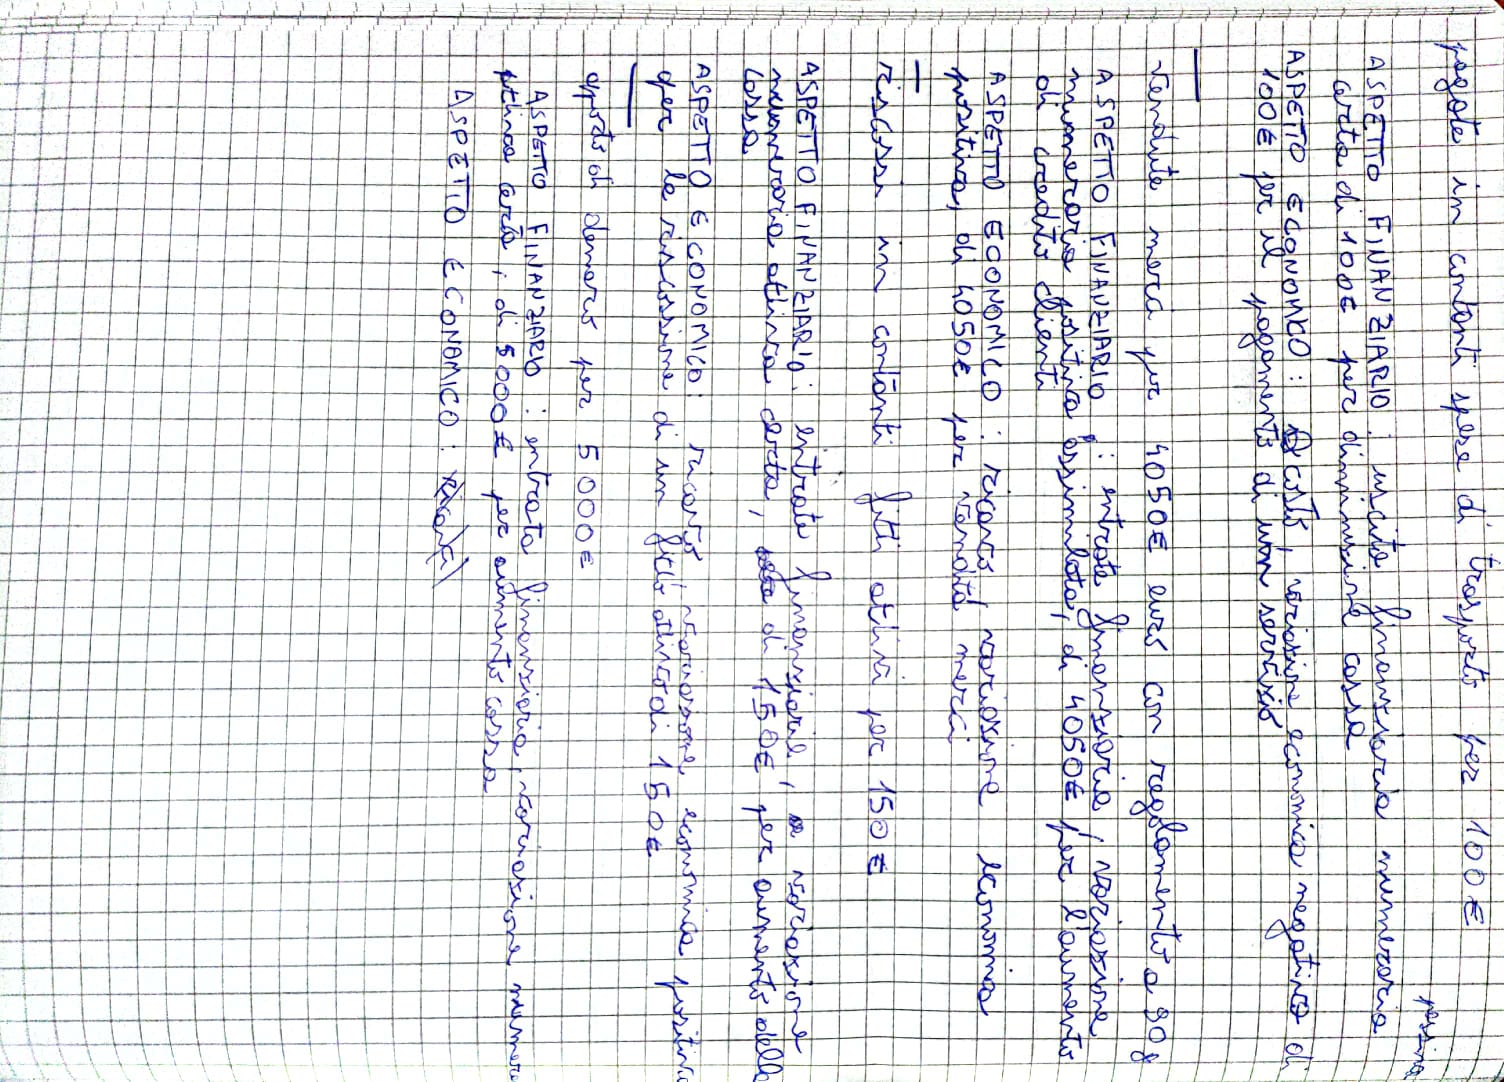 pagate in contanti spese di trasporto per 100€
passiva
ASPETTO FINANZIARIO : uscita finanziaria numeraria
certa di 100€ per diminuzione cassa
ASPETTO ECONOMICO : costo, variazione economica negativa di
100€ per il pagamento di un servizio
vendute merci per 4050€ euro con regolamento a 90g
ASPETTO FINANZIARIO : entrate finanziaria, variazione
numeraria positiva assimilata, di 4050€ per l'aumento
di credito clienti
ASPETTO ECONOMICO : ricavo, variazione economica
positiva, di 4050€ per vendita merci
riscossi in contanti fitti attivi per 150€
ASPETTO FINANZIARIO : entrate finanziarie, variazione
numeraria attiva certa, di 150€ per aumento della
cassa
ASPETTO ECONOMICO : ricavo, variazione economica positiva
per la riscossione di un fitto attivo di 150€
apporto di denaro per 5000€
ASPETTO FINANZIARIO : entrata finanziaria, variazione numera
attiva certa, di 5000€ per aumento cassa
ASPETTO ECONOMICO :